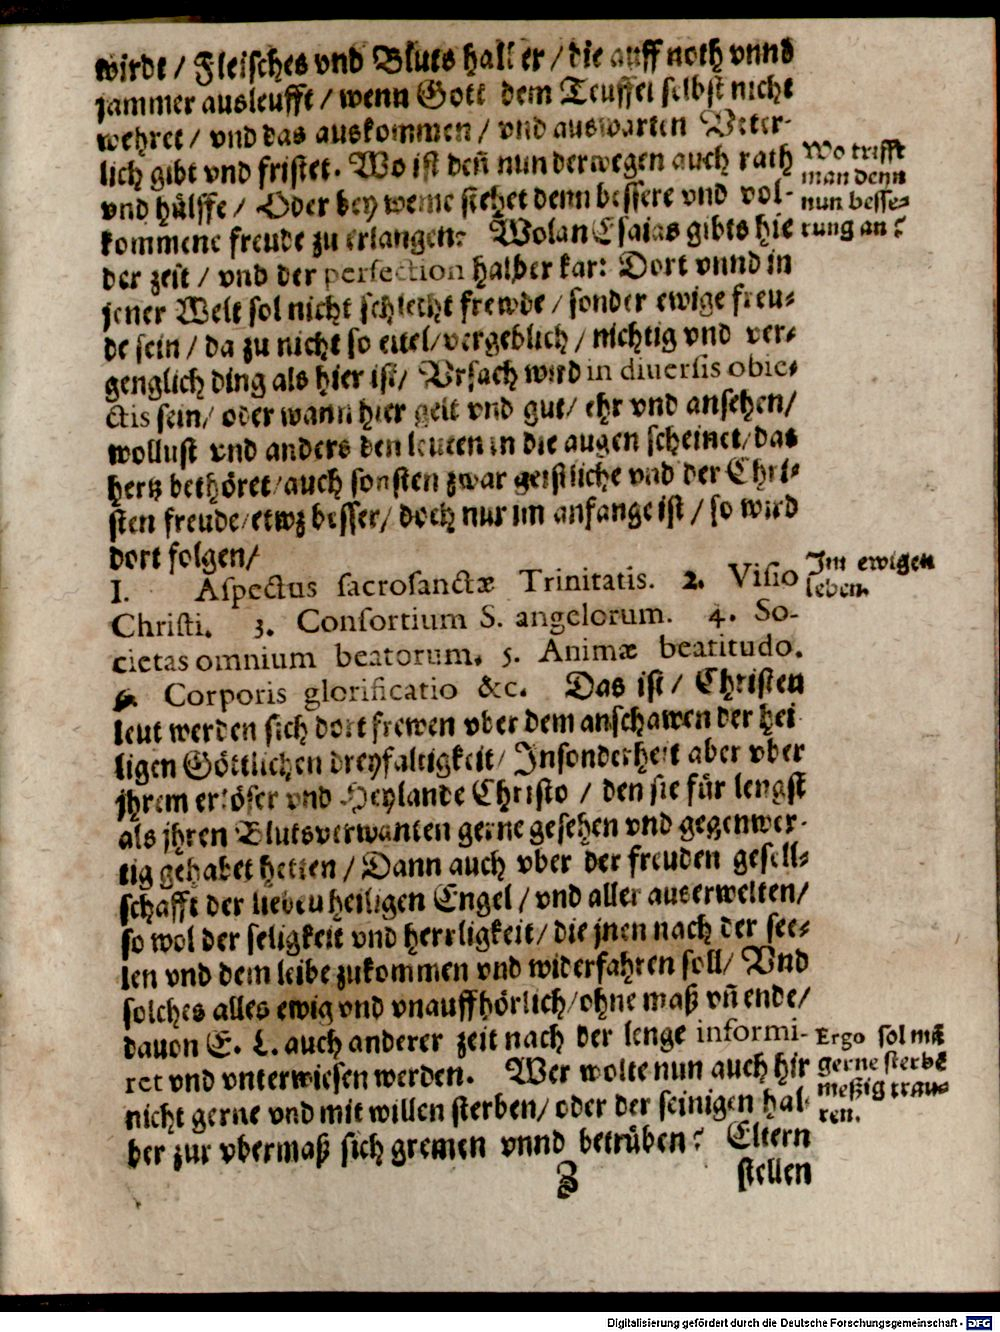 wirdt / Fleisches vnd Bluts halber / die auff noth vnnd
jammer ausleufft / wenn Gott dem Teuffel selbst nicht
wehret / vnd das auskommen / vnd auswarten Veter-
lich gibt vnd fristet. Wo ist deñ nun derwegen auch rath
vnd hülffe / Oder bey weme stehet denn bessere vnd vol-
kommene freude zu erlangen? Wolan Esaias gibts hie
der zeit / vnd der perfection halber kar: Dort vnnd in
jener Welt sol nicht schlecht frewde / sonder ewige freu-
de sein / da zu nicht so eitel / vergeblich / nichtig vnd ver-
genglich ding als hier ist / Vrsach wird in diuersis obie-
ctis sein / oder wann hier gelt vnd gut / ehr vnd ansehen /
wollust vnd anders den leuten in die augen scheinet / das
hertz bethöret / auch sonsten zwar geistliche vnd der Chri-
sten freude / etwz besser / doch nur im anfange ist / so wird
dort folgen /
Wo trifft
man denn
nun besse-
rung an?
I. Aspectus sacrosanctæ Trinitatis. 2. Visio
Christi. 3. Consortium S. angelorum. 4. So-
cietas omnium beatorum. 5. Animæ beatitudo.
6. Corporis glorificatio &c. Das ist / Christen
leut werden sich dort frewen vber dem anschawen der hei
ligen Göttlichen dreyfaltigkeit / Insonderheit aber vber
jhrem erlöser vnd Heylande Christo / den sie für lengst
als jhren Blutsverwanten gerne gesehen vnd gegenwer-
tig gehabet hetten / Dann auch vber der freuden gesell-
schafft der lieben heiligen Engel / vnd aller auserwelten /
so wol der seligkeit vnd herrligkeit / die jnen nach der see-
len vnd dem leibe zukommen vnd widerfahren soll / Vnd
solches alles ewig vnd vnauffhörlich / ohne maß vñ ende /
dauon E. L. auch anderer zeit nach der lenge informi-
ret vnd vnterwiesen werden. Wer wolte nun auch hir
nicht gerne vnd mit willen sterben / oder der seinigen hal-
ber zur vbermaß sich gremen vnnd betrüben? Eltern
Im ewigen
leben.
Ergo sol mã
gerne sterbẽ
meßig trau-
ren.
Z
stellen
Digitalisierung gefördert durch die Deutsche Forschungsgemeinschaft - DFG